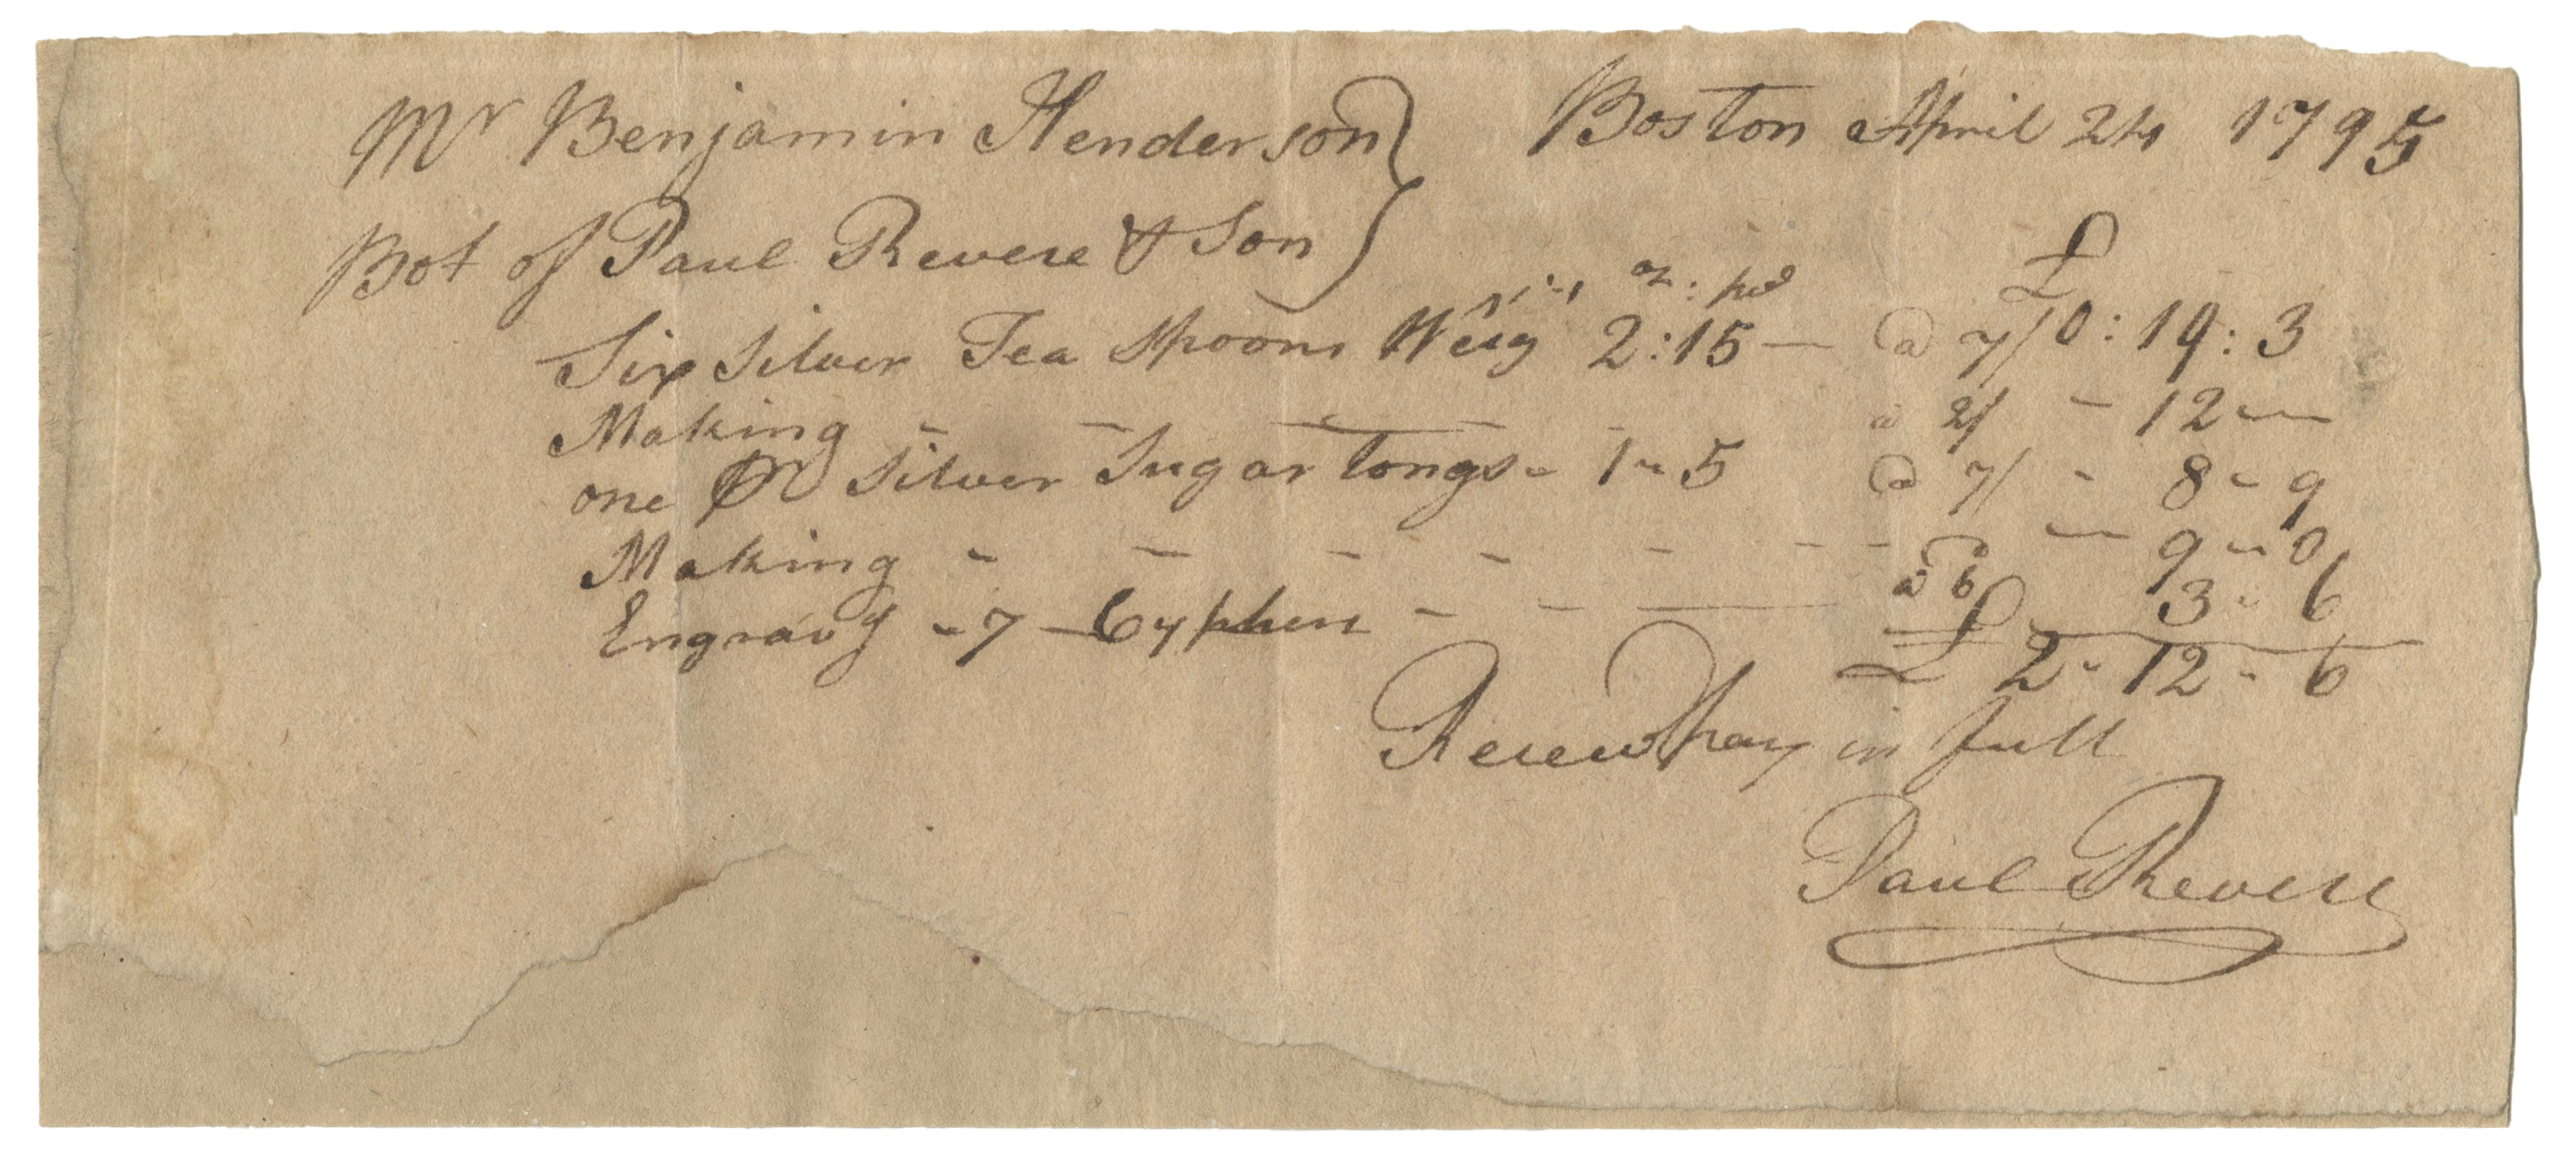 Mr Benjamin Henderson } Boston April 24 1795
Bot of Paul Revere & Son } £
oz: pwt
Six Silver Tea Spoons Weig 2:15 — @ 7/ 0:19:3
Making - - - - - a 2/ - 12 —
one Pr Silver Sugar Tongs - 1 - 5 @ 7/ - 8 - 9
Making - - - - - - - - — 9 - 0
Engravg - 7 - Cyphers - - — a 6 3 - 6
£ 2 - 12 - 6
Receivd pay in full
Paul Revere